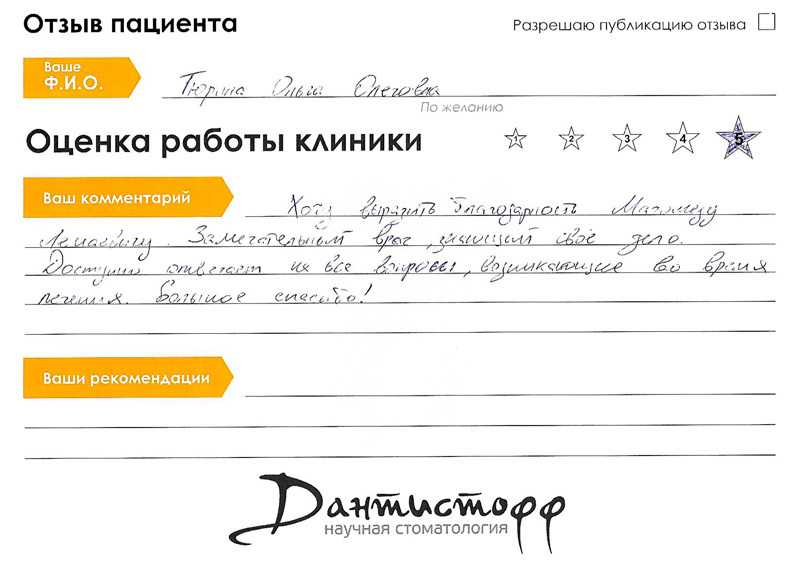 Отзыв пациента
Разрешаю публикацию отзыва
Ваше
Ф.И.О.
Тюрина Ольга Олеговна
По желанию
Оценка работы клиники
1 2 3 4 5
Ваш комментарий
Хочу выразить благодарность Магомеду
Замечательный врач, знающий своё дело.
Доступно отвечает на все вопросы, возникающие во время
лечения. Большое спасибо!
Ваши рекомендации
Дантистофф
научная стоматология